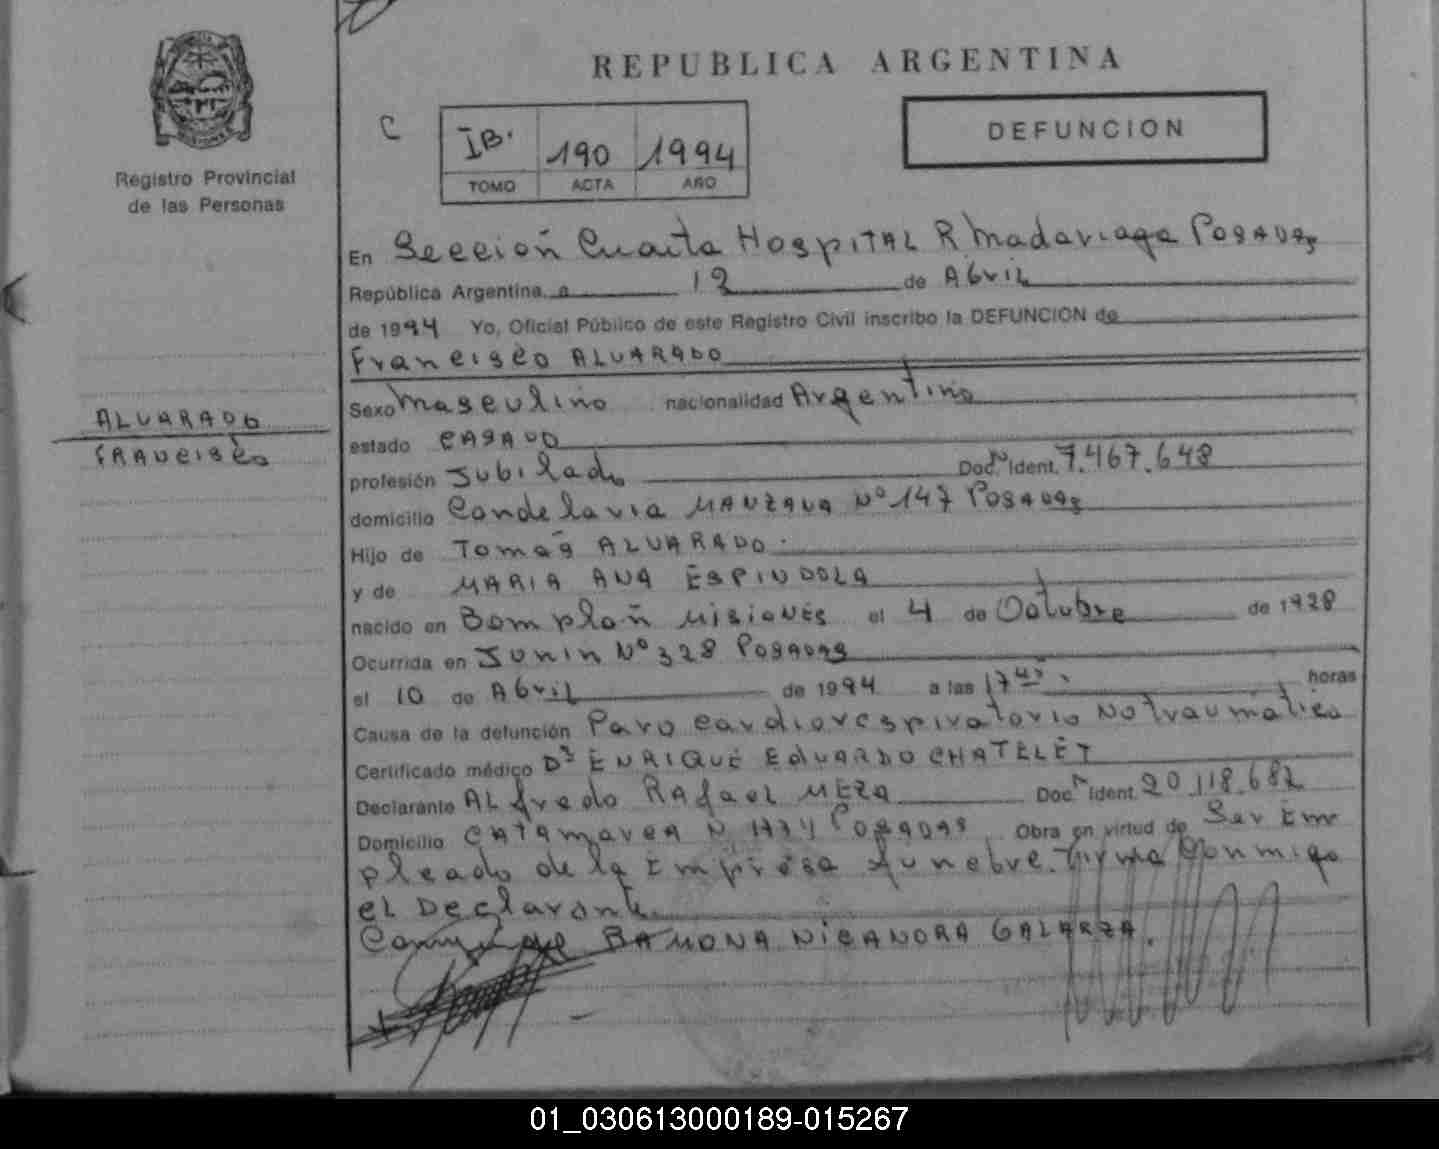 REPUBLICA ARGENTINA
Registro Provincial
de las Personas
C
IB. 190 1994
TOMO ACTA AÑO
DEFUNCION
En Sección Cuarta Hospital R Madariaga Posadas
República Argentina, a 12 de Abril
de 1994 Yo, Oficial Público de este Registro Civil inscribo la DEFUNCION de
Francisco ALVARADO
ALVARADO
FRANCISCO
Sexo Masculino nacionalidad Argentino
estado CASADO
profesión Jubilado Doc. N Ident. 7.467.648
domicilio Candelaria MANZANA Nº 147 POSADAS
Hijo de Tomas ALVARADO.
y de MARIA ANA ESPINDOLA
nacido en Bomplan MISIONES el 4 de Octubre de 1928
Ocurrida en Junin Nº 328 POSADAS
el 10 de Abril de 1994 a las 17 horas
Causa de la defunción Paro cardiorespiratorio No traumatico
Certificado médico Dr ENRIQUE EDUARDO CHATELET
Declarante Alfredo Rafael MEZA Doc. N Ident. 20.118.682
Domicilio CATAMARCA N POSADAS Obra en virtud de Ser Em
pleado de la Empresa funebre. Firma Conmigo
el Declarante
Conyuge RAMONA NICANORA GALARZA.
01_030613000189-015267